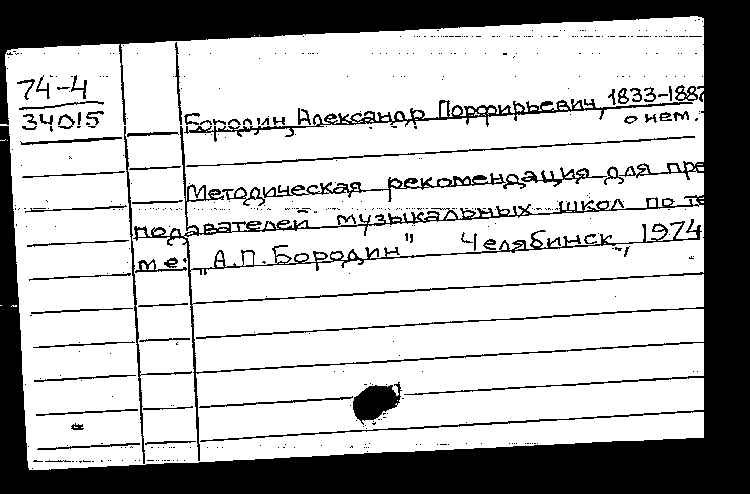 74-4
34015
Бородин, Александр Порфирьевич, 1833-1887
о нем.
Методическая рекомендация для пре
подавателей музыкальных школ по те
ме: „А.П. Бородин" Челябинск, 1974